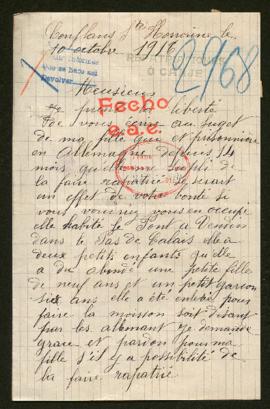 Conflans Ste Honorine le
10 octobre 1916
2968
que se hace así
Devolver
Monsieur
je prends liberté
Fecho
De vous écrire au suget
e.a.e.
de ma fille qui et prisonnière
en Allemagne depuis
mois
la faire rapatrié se serait
un effet de votre bonté si
vous vouriez vous en occupé
elle habite le Pont a Vendin
dans le Pas de Calais elle a
deux petits enfants qu'elle
a du abondé une petite fille
de neuf ans et un petit garçon
six ans elle a été enlevé pour
faire la moison soit disant
par les allemant je demande
grace et pardon pour ma
fille s'il y a possibilité de
la faire rapatrié